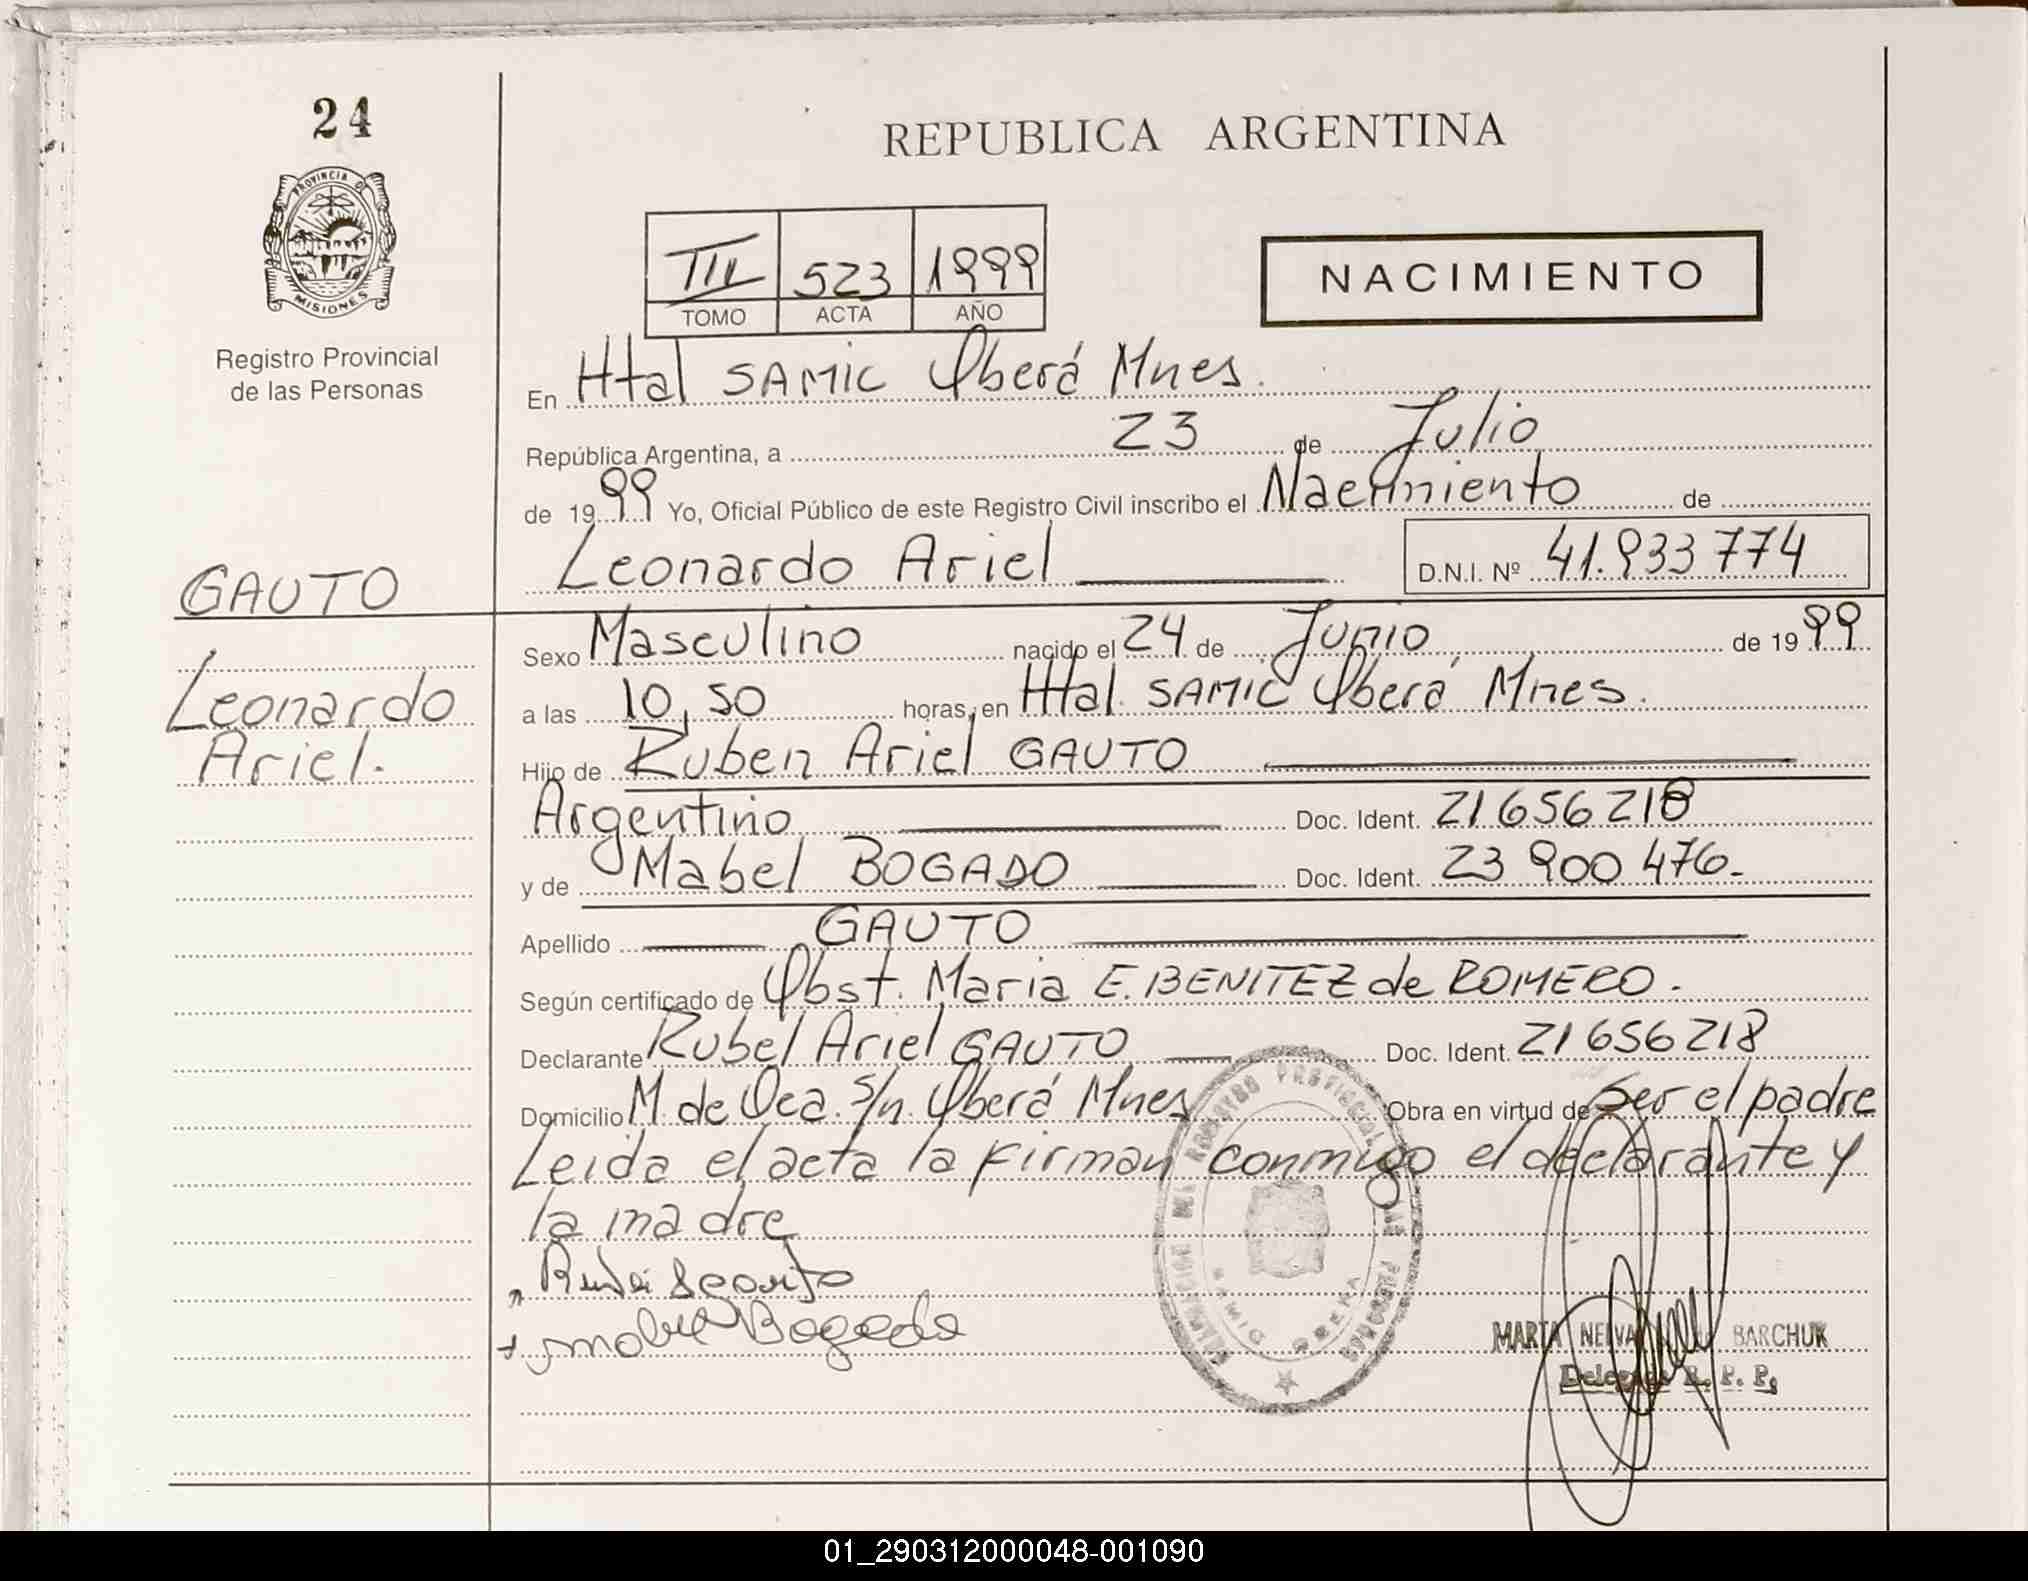 24
PROVINCIA DE
MISIONES
Registro Provincial
de las Personas
REPUBLICA ARGENTINA
III 523 1999
TOMO ACTA AÑO
NACIMIENTO
En Htal SAMIC Oberá Mnes.
República Argentina, a 23 de Julio
de 1999 Yo, Oficial Público de este Registro Civil inscribo el Nacimiento de
Leonardo Ariel D.N.I. Nº 41.933774
GAUTO
Leonardo
Ariel.
Sexo Masculino nacido el 24 de Junio de 1999
a las 10,50 horas, en Htal. SAMIC Oberá Mnes.
Hijo de Ruben Ariel GAUTO
Argentino Doc. Ident. 21 656 218
y de Mabel BOGADO Doc. Ident. 23 900 476-
Apellido GAUTO
Según certificado de Obst. Maria E. BENITEZ de ROMERO.
Declarante Rubel Ariel GAUTO Doc. Ident. 21 656 218
Domicilio M. de Oca. S/n. Oberá Mnes Obra en virtud de ser el padre
Leida el acta la firman conmigo el declarante y
la madre
Bogado
MARTA NELVA BARCHUK
Delegada R. P. P.
01_290312000048-001090